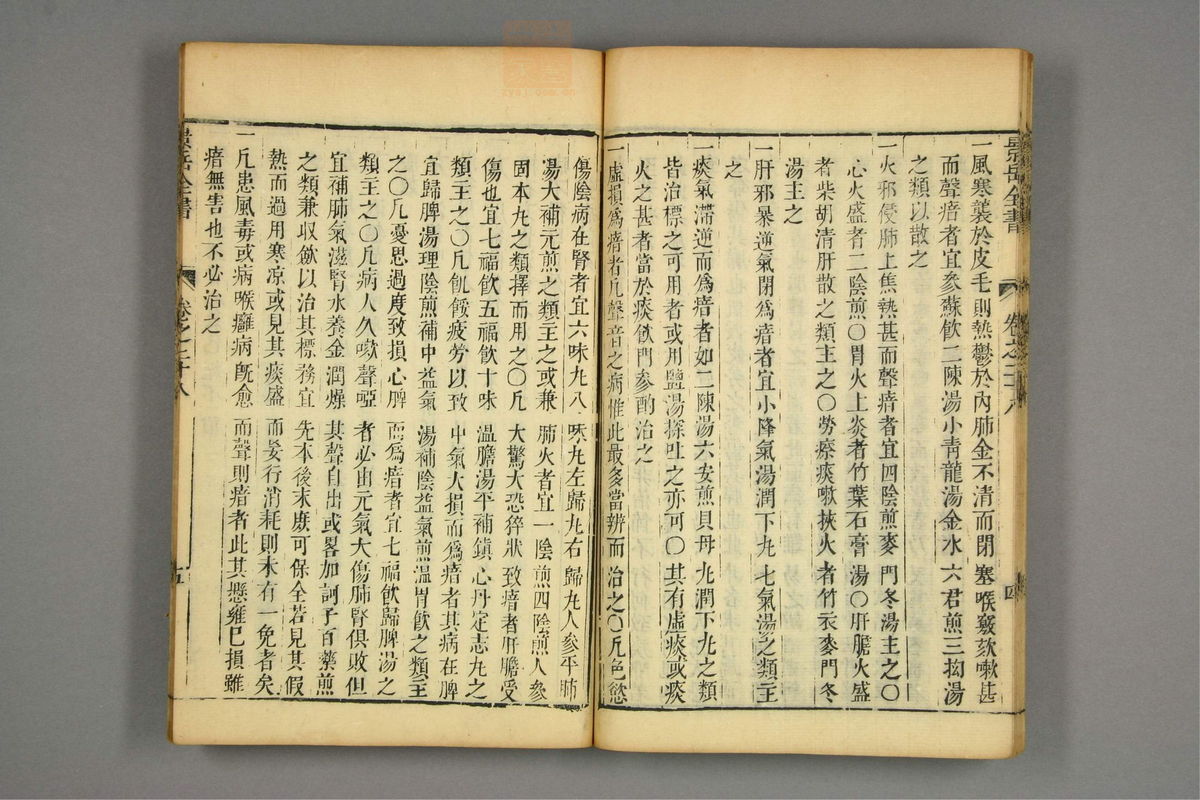 景岳全書
卷之二十八
四
一風寒襲於皮毛則熱鬱於內肺金不清而閉塞喉竅欬嗽甚
而聲瘖者宜參蘇飲二陳湯小青龍湯金水六君煎三拗湯
之類以散之
一火邪侵肺上焦熱甚而聲瘖者宜四陰煎麥門冬湯主之〇
心火盛者二陰煎〇胃火上炎者竹葉石膏湯〇肝膽火盛
者柴胡清肝散之類主之〇勞瘵痰嗽挾火者竹衣麥門冬
湯主之
一肝邪暴逆氣閉爲瘖者宜小降氣湯潤下丸七氣湯之類主
之
一痰氣滯逆而爲瘖者如二陳湯六安煎貝母丸潤下丸之類
皆治標之可用者或用鹽湯探吐之亦可〇其有虛痰或痰
火之甚者當於痰飲門參酌治之
一虛損爲瘖者凡聲音之病惟此最多當辨而治之〇凡色慾
傷陰病在腎者宜六味丸八味丸左歸丸右歸丸人參平肺
湯大補元煎之類主之或兼肺火者宜一陰煎四陰煎人參
固本丸之類擇而用之〇凡大驚大恐猝狀致瘖者肝膽受
傷也宜七福飲五福飲十味溫膽湯平補鎮心丹定志丸之
類主之〇凡飢餒疲勞以致中氣大損而爲瘖者其病在脾
宜歸脾湯理陰煎補中益氣湯補陰益氣煎溫胃飲之類主
之〇凡憂思過度致損心脾而爲瘖者宜七福飲歸脾湯之
類主之〇凡病人久嗽聲啞者必由元氣大傷肺腎俱敗但
宜補肺氣滋腎水養金潤燥其聲自出或畧加訶子百藥煎
之類兼收歛以治其標務宜先本後末庶可保全若見其假
熱而過用寒凉或見其痰盛而妄行消耗則未有一免者矣
一凡患風毒或病喉癰病既愈而聲則瘖者此其懸雍已損雖
瘖無害也不必治之
景岳全書
卷之二十八
五